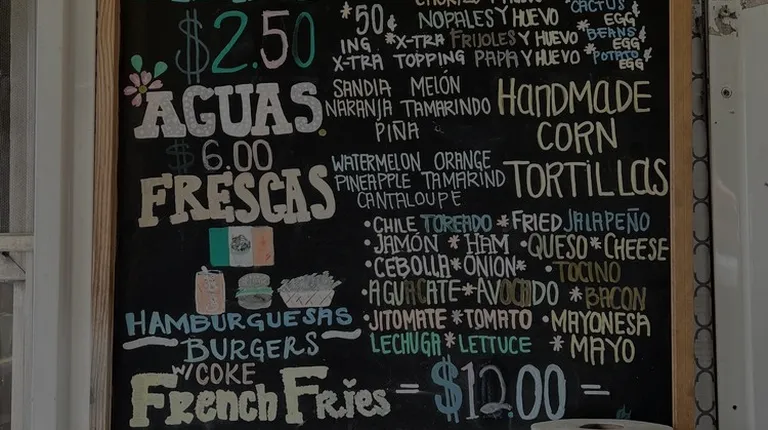 $2.50
*50¢
ING.
*X-TRA
X-TRA TOPPING
NOPALES Y HUEVO
FRIJOLES Y HUEVO
PAPA Y HUEVO
CACTUS
EGG
BEANS
EGG
POTATO
EGG
AGUAS
$6.00
FRESCAS
SANDIA MELÓN
NARANJA TAMARINDO
PIÑA
WATERMELON ORANGE
PINEAPPLE TAMARIND
CANTALOUPE
HANDMADE
CORN
TORTILLAS
•CHILE TOREADO *FRIED JALAPEÑO
•JAMÓN *HAM •QUESO*CHEESE
•CEBOLLA*ONION* •TOCINO
•AGUACATE*AVOCADO *BACON
•JITOMATE*TOMATO •MAYONESA
LECHUGA*LETTUCE *MAYO
HAMBURGUESAS
BURGERS
W/COKE
French Fries = $12.00 =